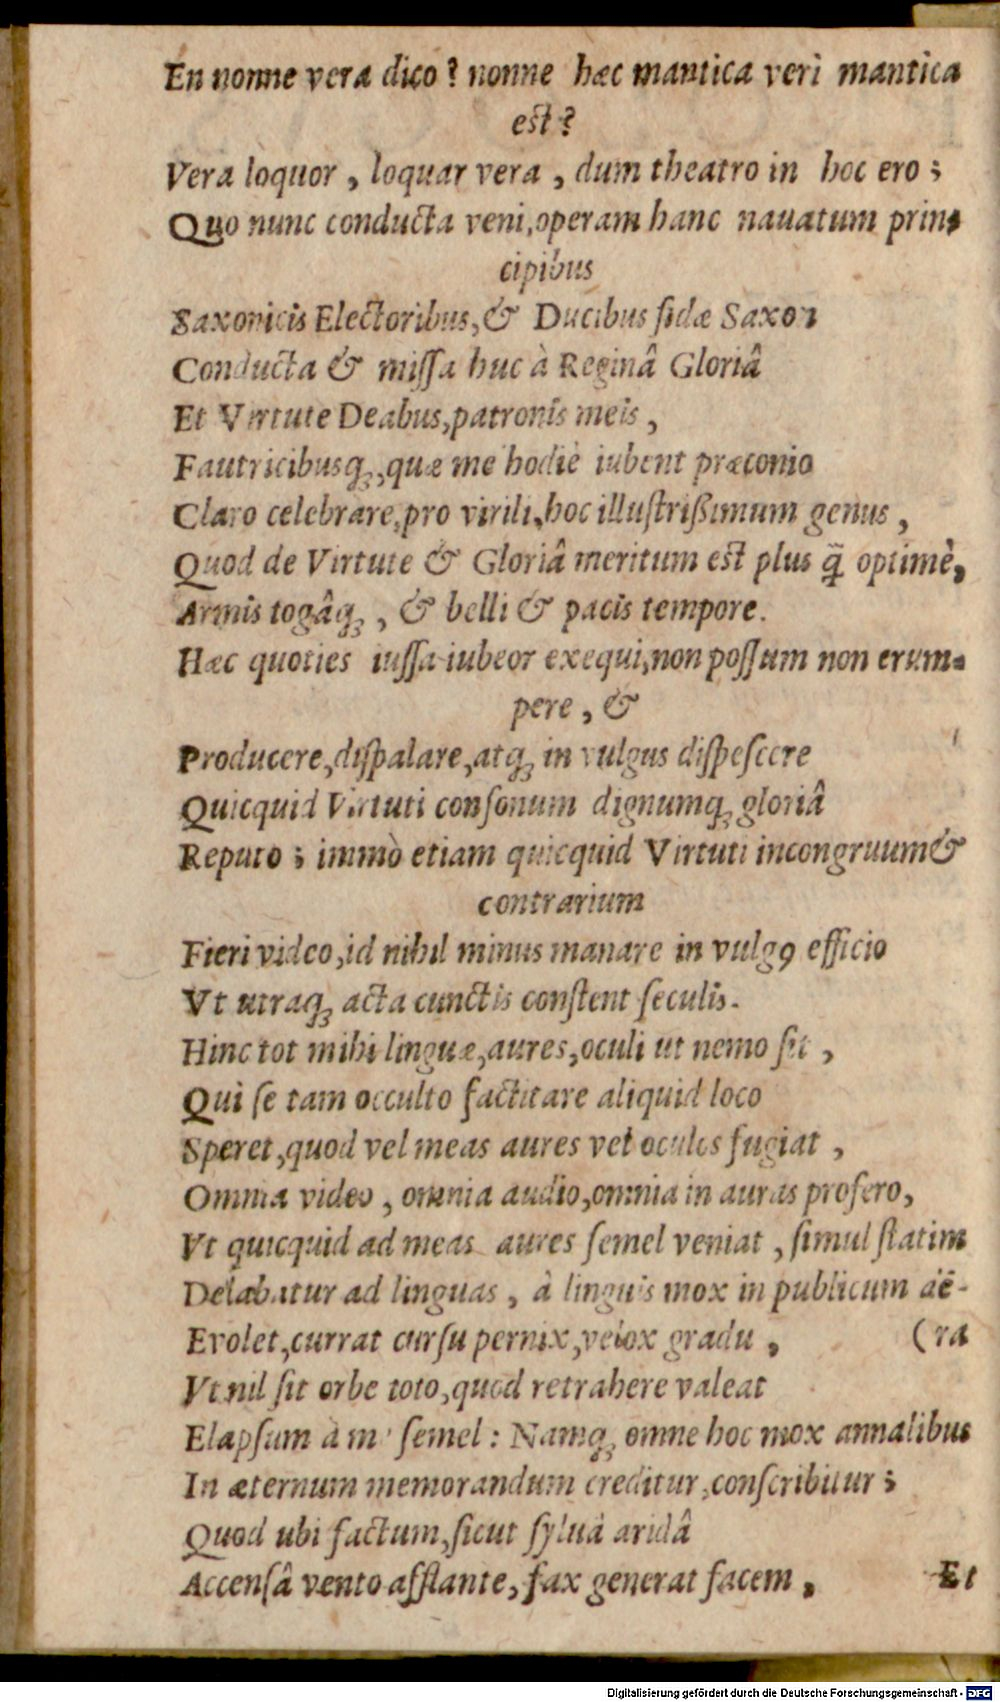 En nonne vera dico? nonne hæc mantica veri mantica
est?
Vera loquor, loquar vera, dum theatro in hoc ero;
Quo nunc conducta veni, operam hanc nauatum prin-
cipibus
Saxonicis Electoribus, & Ducibus fidæ Saxon
Conducta & missa huc à Reginâ Gloriâ
Et Virtute Deabus, patronis meis,
Fautricibusq;, quæ me hodie iubent præconio
Claro celebrare, pro virili, hoc illustrißimum genus,
Quod de Virtute & Gloriâ meritum est plus q̃ optimè,
Armis togâq;, & belli & pacis tempore.
Hæc quoties iussa iubeor exequi, non possum non erum-
pere, &
Producere, dispalare, atq; in vulgus dispescere
Quicquid Virtuti consonum dignumq; gloriâ
Reputo; immò etiam quicquid Virtuti incongruum &
contrarium
Fieri video, id nihil minus manare in vulgꝯ efficio
Vt utraq; acta cunctis constent seculis.
Hinc tot mihi linguæ, aures, oculi ut nemo sit,
Qui se tam occulto factitare aliquid loco
Speret, quod vel meas aures vel oculos fugiat,
Omnia video, omnia audio, omnia in auras profero,
Vt quicquid ad meas aures semel veniat, simul statim
Delabatur ad linguas, à linguis mox in publicum aë-
Evolet, currat cursu pernix, velox gradu, (ra
Vt nil sit orbe toto, quod retrahere valeat
Elapsum à me semel: Namq; omne hoc mox annalibus
In æternum memorandum creditur, conscribitur;
Quod ubi factum, sicut syluâ aridâ
Accensâ vento afflante, fax generat facem,
Et
Digitalisierung gefördert durch die Deutsche Forschungsgemeinschaft - DFG